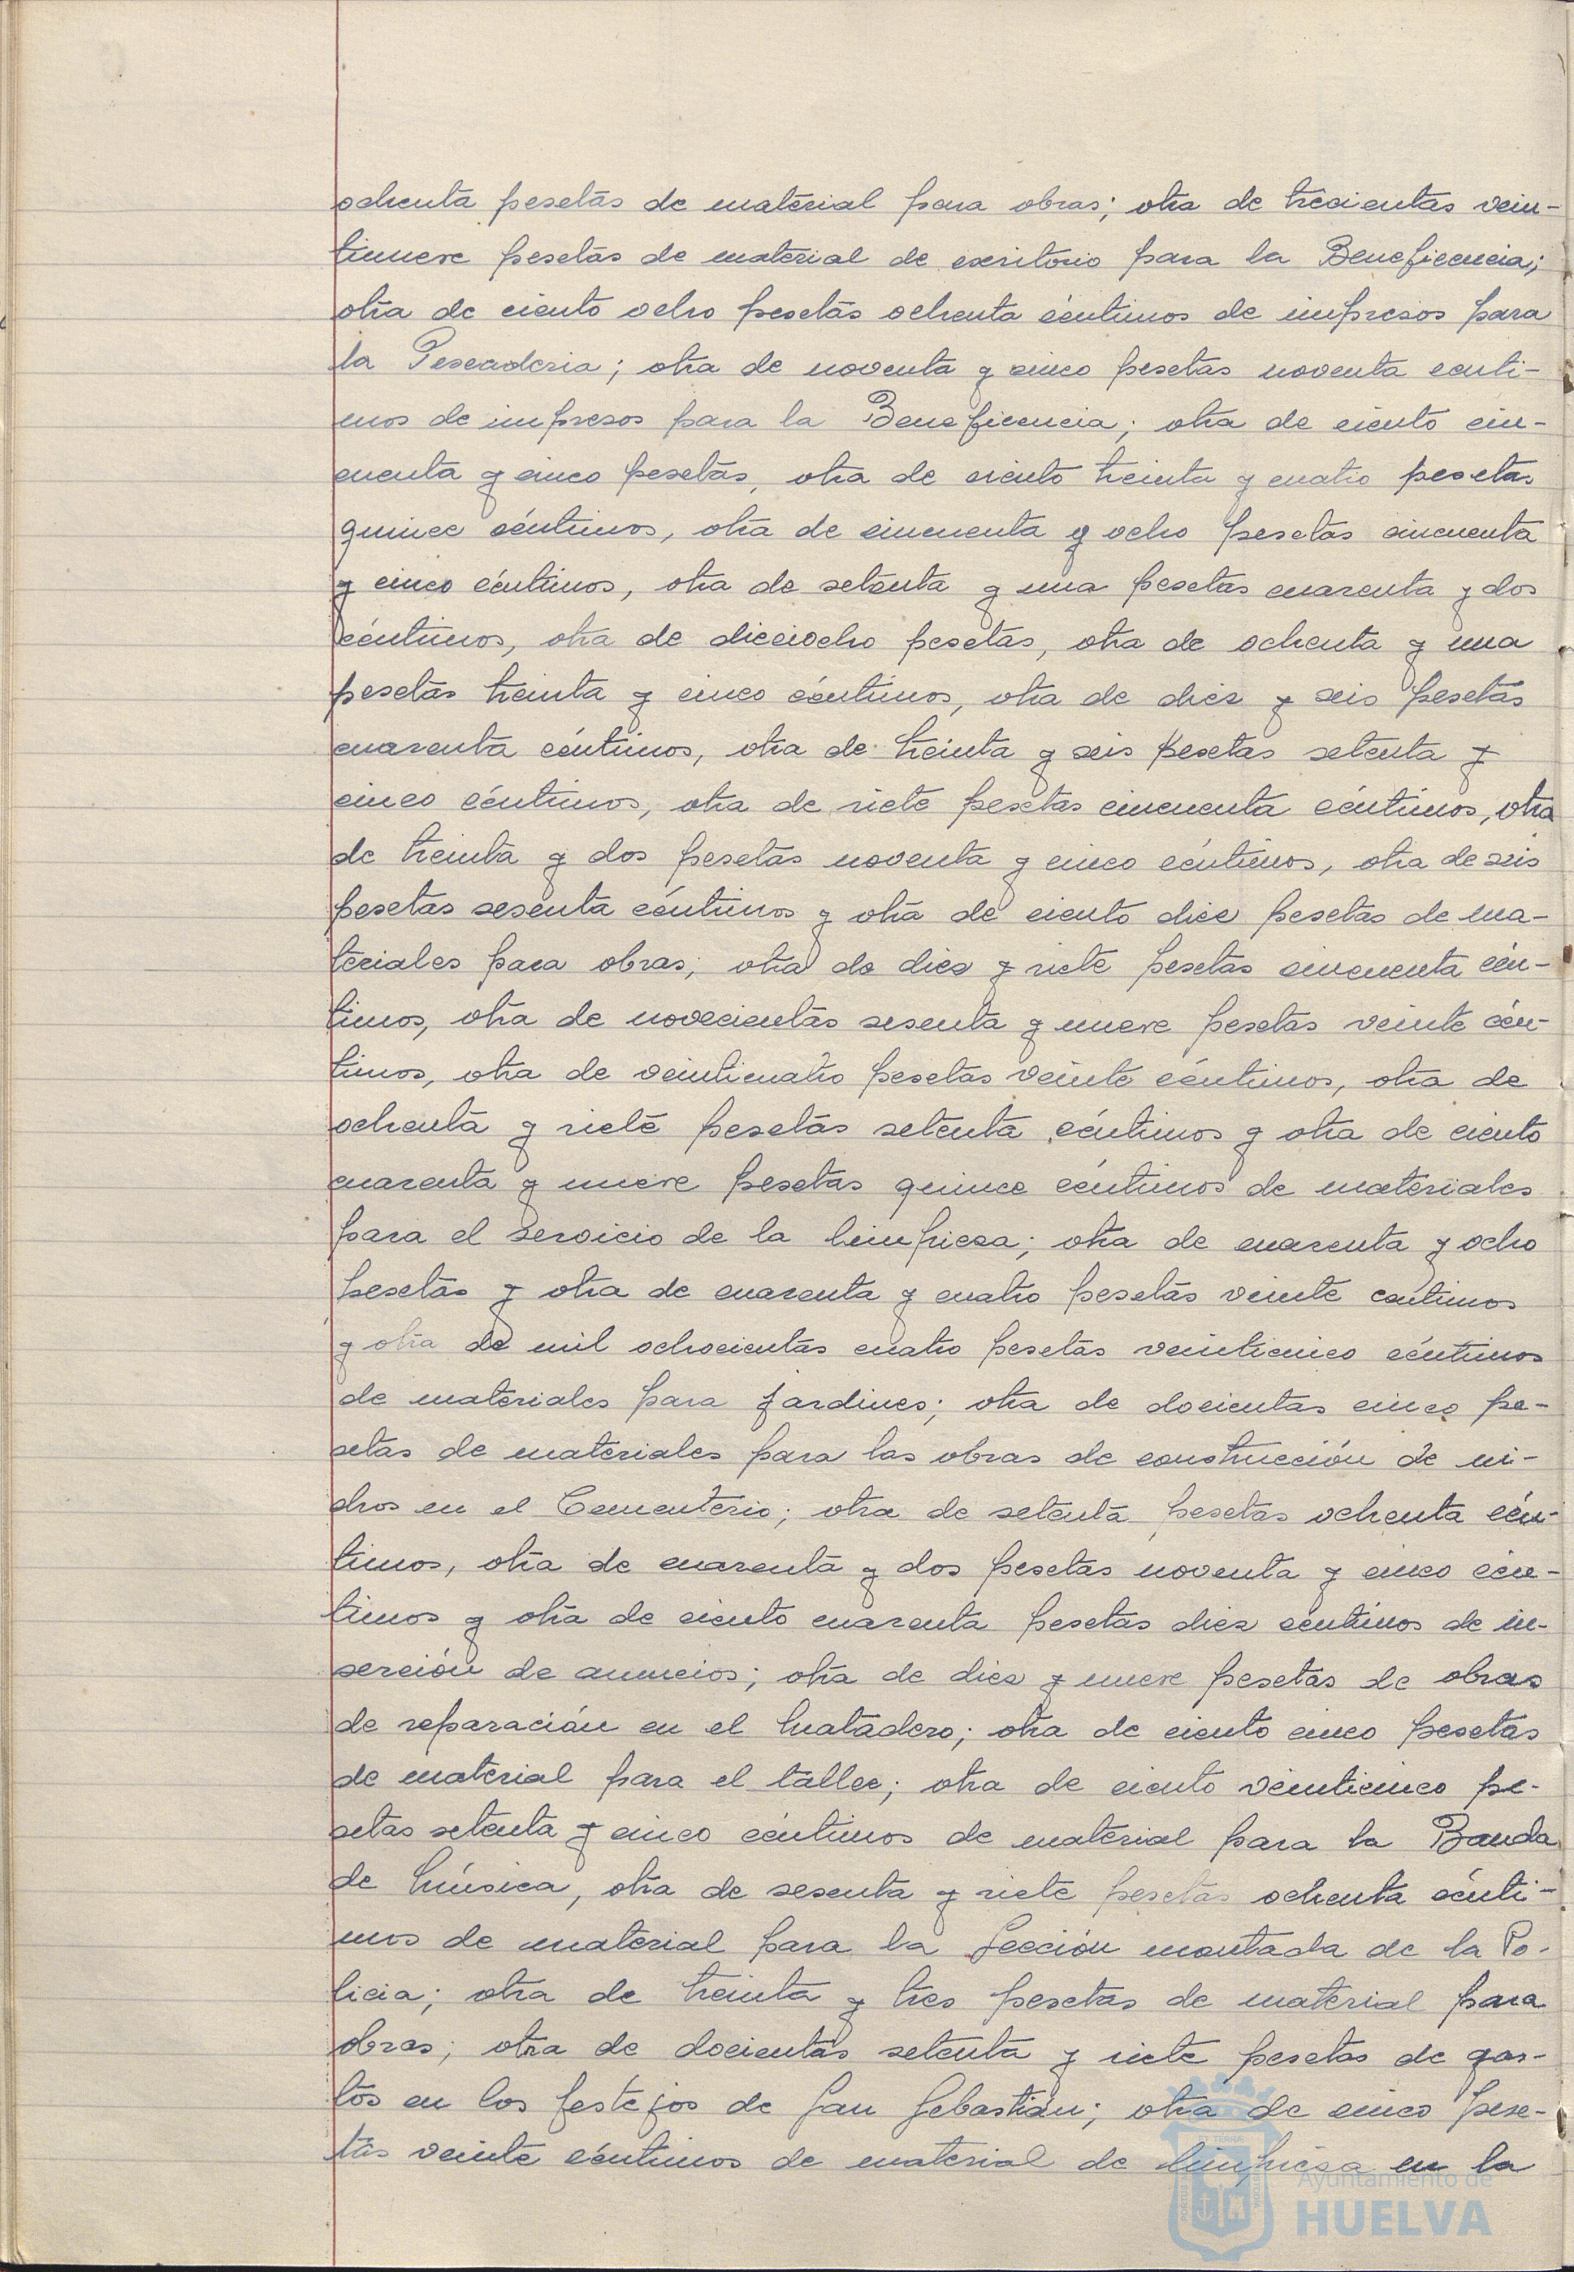 ochenta pesetas de material para obras; otra de trecientas vein-
tinueve pesetas de material de escritorio para la Beneficencia;
otra de ciento ocho pesetas ochenta céntimos de impresos para
la Pescaderia; otra de noventa y cinco pesetas noventa centi-
mos de impresos para la Beneficencia; otra de ciento cin-
cuenta y cinco pesetas, otra de ciento treinta y cuatro pesetas
quince céntimos, otra de cincuenta y ocho pesetas cincuenta
y cinco céntimos, otra de setenta y una pesetas cuarenta y dos
céntimos, otra de diecciocho pesetas, otra de ochenta y una
pesetas treinta y cinco céntimos, otra de diez y seis pesetas
cuarenta céntimos, otra de treinta y seis pesetas setenta y
cinco céntimos, otra de siete pesetas cincuenta céntimos, otra
de treinta y dos pesetas noventa y cinco céntimos, otra de seis
pesetas sesenta céntimos y otra de ciento diez pesetas de ma-
teriales para obras; otra de diez y siete pesetas cincuenta cén-
timos, otra de novecientas sesenta y nueve pesetas veinte cén-
timos, otra de veinticuatro pesetas veinte céntimos, otra de
ochenta y siete pesetas setenta céntimos y otra de ciento
cuarenta y nueve pesetas quince céntimos de materiales
para el servicio de la limpieza; otra de cuarenta y ocho
pesetas y otra de cuarenta y cuatro pesetas veinte centimos
y otra de mil ochocientas cuatro pesetas veinticinco céntimos
de materiales para jardines; otra de docientas cinco pe-
setas de materiales para las obras de construcción de ni-
chos en el Cementerio; otra de setenta pesetas ochenta cén-
timos, otra de cuarenta y dos pesetas noventa y cinco cén-
timos y otra de ciento cuarenta pesetas diez céntimos de in-
serción de anuncios; otra de diez y nueve pesetas de obras
de reparación en el Matadero; otra de ciento cinco pesetas
de material para el taller; otra de ciento veinticinco pe-
setas setenta y cinco céntimos de material para la Banda
de Música, otra de sesenta y siete pesetas ochenta cénti-
mos de material para la Sección montada de la Po-
licia; otra de treinta y tres pesetas de material para
obras; otra de docientas setenta y siete pesetas de gas-
tos en los festejos de San Sebastián; otra de cinco pese-
tas veinte céntimos de material de limpieza en la
Ayuntamiento de
HUELVA